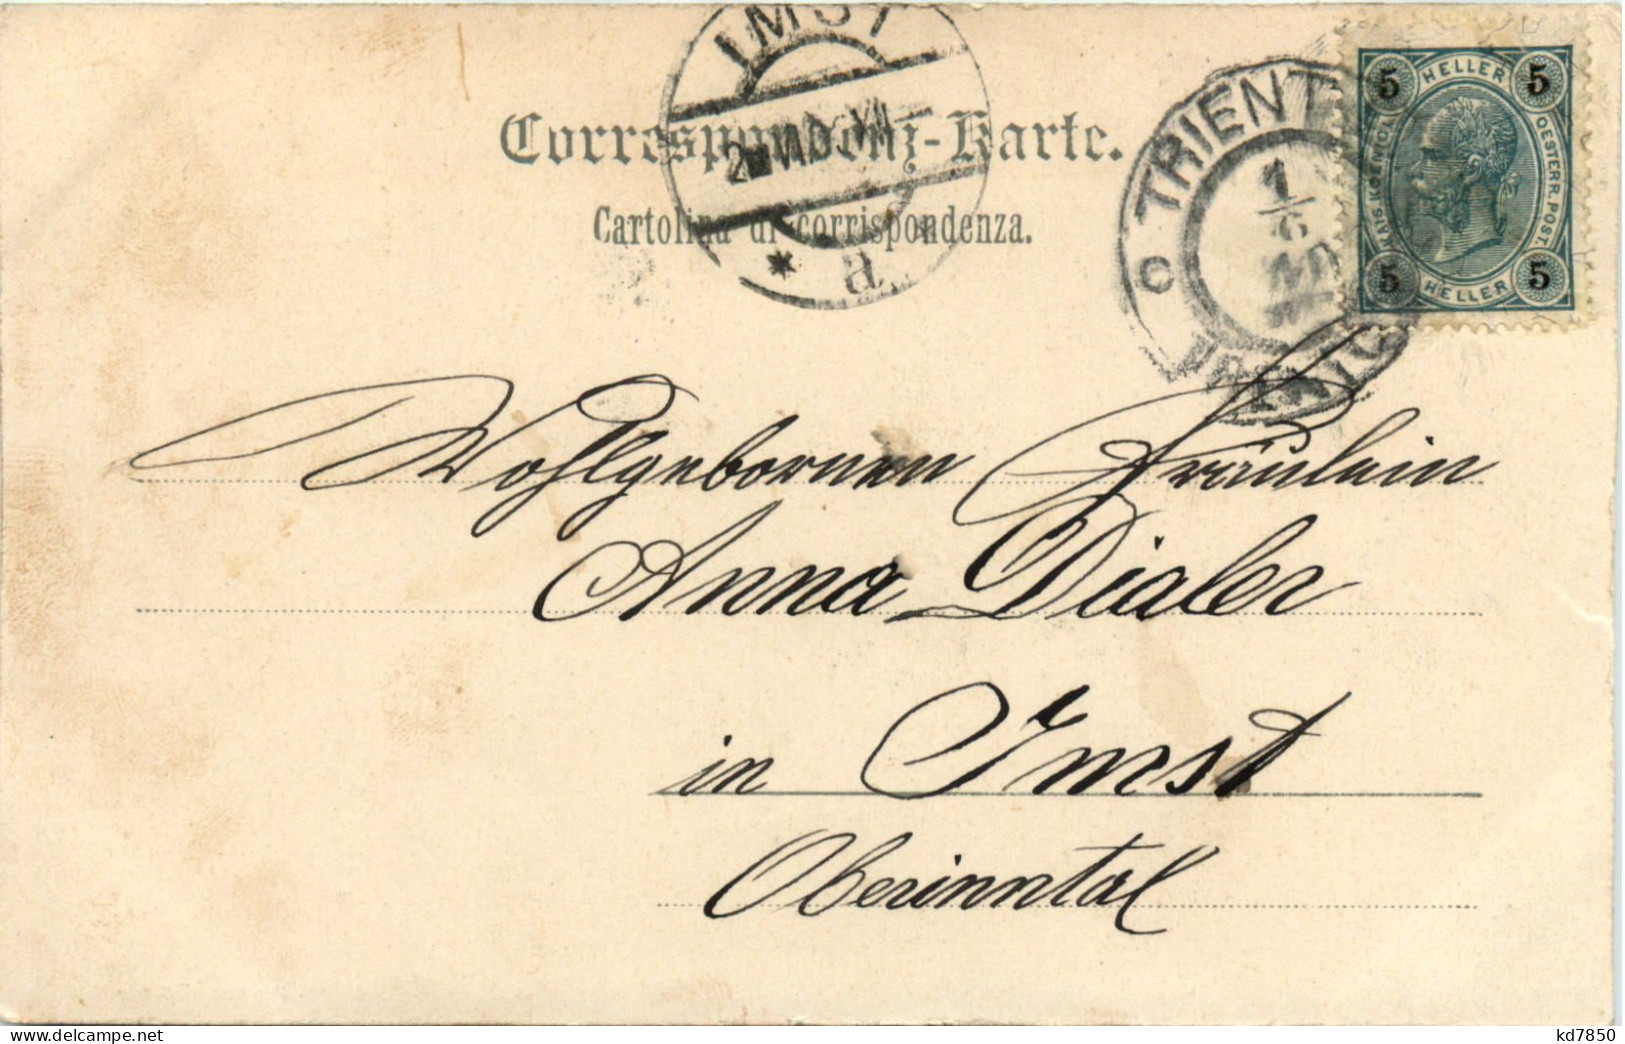 IMST
Correspondenz-Karte.
Cartolina di corrispondenza.
* a
TRIENT
1
6
5 HELLER 5
KAIS. KOENIGL. OESTERR. POST.
5 HELLER 5
Wohlgebornen Fräulein
Anna Dialer
in Imst
Oberinntal
kd7850